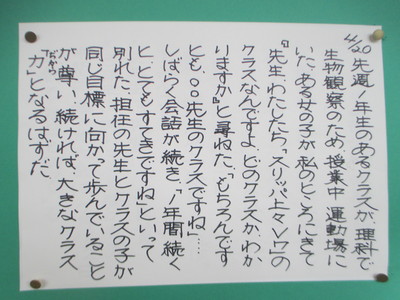 4/20 先週一年生のあるクラスが、理科で
生物観察のため、授業中運動場に
いた。ある女の子が私のところにきて
『先生、わたしたち、"スリッパ上々V7"の
クラスなんですよ。どのクラスかわか
りますか』と尋ねた。「もちろんです
とも、○○先生のクラスですね」…
しばらく会話が続き、「1年間続く
と、とてもすてきですね」といって
別れた。担任の先生とクラスの子が
同じ目標に向かって歩んでいること
が尊い。続ければ、大きなクラス
「力」となるはずだ。